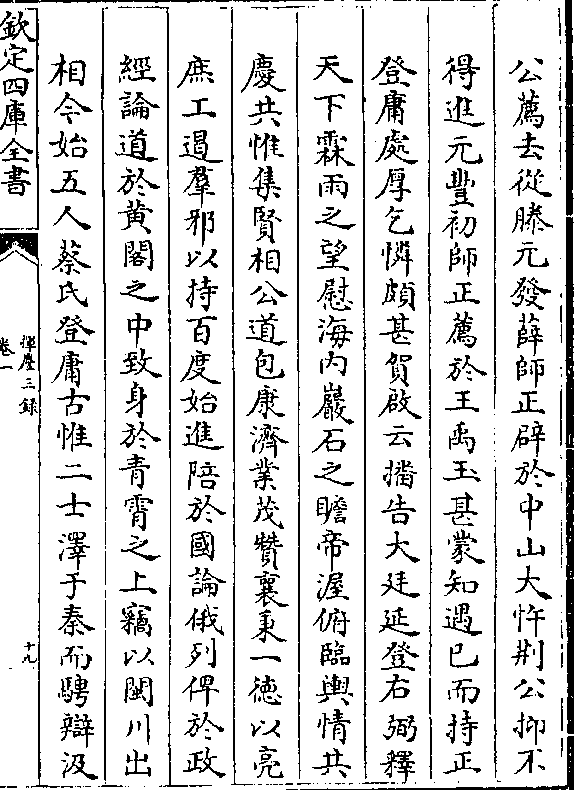 公薦去從滕元發薛師正辟於中山大忤荆公抑不
得進元豐初師正薦於王禹玉甚蒙知遇已而持正
登庸處厚乞憐頗甚賀啟云播告大廷延登右弼釋
天下霖雨之望慰海内巖石之瞻帝渥俯臨輿情共
慶共惟集賢相公道包康濟業茂贊襄秉一徳以亮
庶工遏羣邪以持百度始進陪於國論俄列俾於政
經論道於黄閣之中致身於青霄之上竊以閩川出
相今始五人蔡氏登庸古惟二士澤于秦而騁辯汲
欽定四庫全書
揮麈三録
卷一
十九